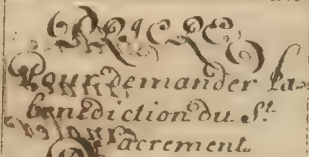 PRIERE
Pour demander la
benediction du St.
Sacrement